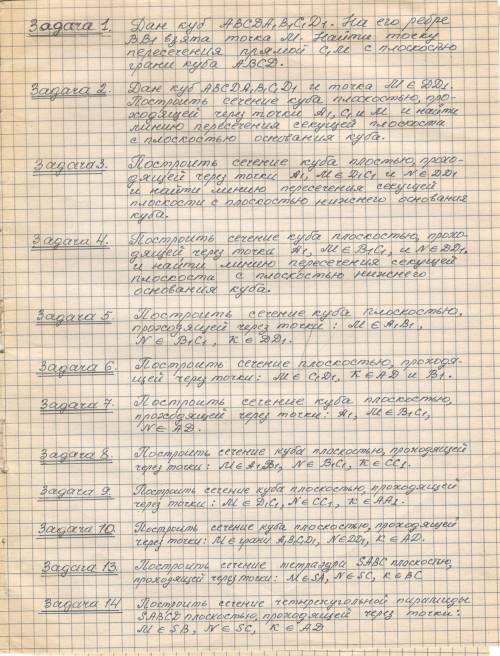 Задача 1. Дан куб ABCDA₁B₁C₁D₁. На его ребре
BB₁ взята точка M. Найти точку
пересечения прямой C₁M с плоскостью
грани куба ABCD.
Задача 2. Дан куб ABCDA₁B₁C₁D₁ и точка M ∈ DD₁.
Построить сечение куба плоскостью, про-
ходящей через точки A₁, C₁ и M и найти
линию пересечения секущей плоскости
с плоскостью основания куба.
Задача 3. Построить сечение куба плостью, прохо-
дящей через точки A₁, M ∈ D₁C₁ и N ∈ DD₁
и найти линию пересечения секущей
плоскости с плоскостью нижнего основания
куба.
Задача 4. Построить сечение куба плоскостью, прохо-
дящей через точка A₁, M ∈ B₁C₁, и N ∈ DD₁.
и найти линию пересечения секущей
плоскоста с плоскостью нижнего
основания куба.
Задача 5. Построить сечение куба плоскостью,
проходящей через точки: M ∈ A₁B₁,
N ∈ B₁C₁, K ∈ DD₁.
Задача 6. Построить сечение плоскостью, проходя-
щей через точки: M ∈ C₁D₁, K ∈ AD и B₁.
Задача 7. Построить сечение куба плоскостью,
проходящей через точки: A₁, M ∈ B₁C₁,
N ∈ AD.
Задача 8. Построить сечение куба плоскостью, проходящей
через точки: M ∈ A₁B₁, N ∈ B₁C₁, K ∈ CC₁.
Задача 9. Построить сечение куба плоскостью, проходящей
через точки: M ∈ D₁C₁, N ∈ CC₁, K ∈ AA₁.
Задача 10. Построить сечение куба плоскостью, проходящей
через точки: M ∈ грани A₁B₁C₁D₁, N ∈ DD₁, K ∈ AD.
Задача 13. Построить сечение тетраэдра SABC плоскостью,
проходящей через тоски: M ∈ SA, N ∈ SC, K ∈ BC
Задача 14 Построить сечение четырехугольной пирамиды
SABCD плоскостью, проходящей через точки:
M ∈ SB, N ∈ SC, K ∈ AD